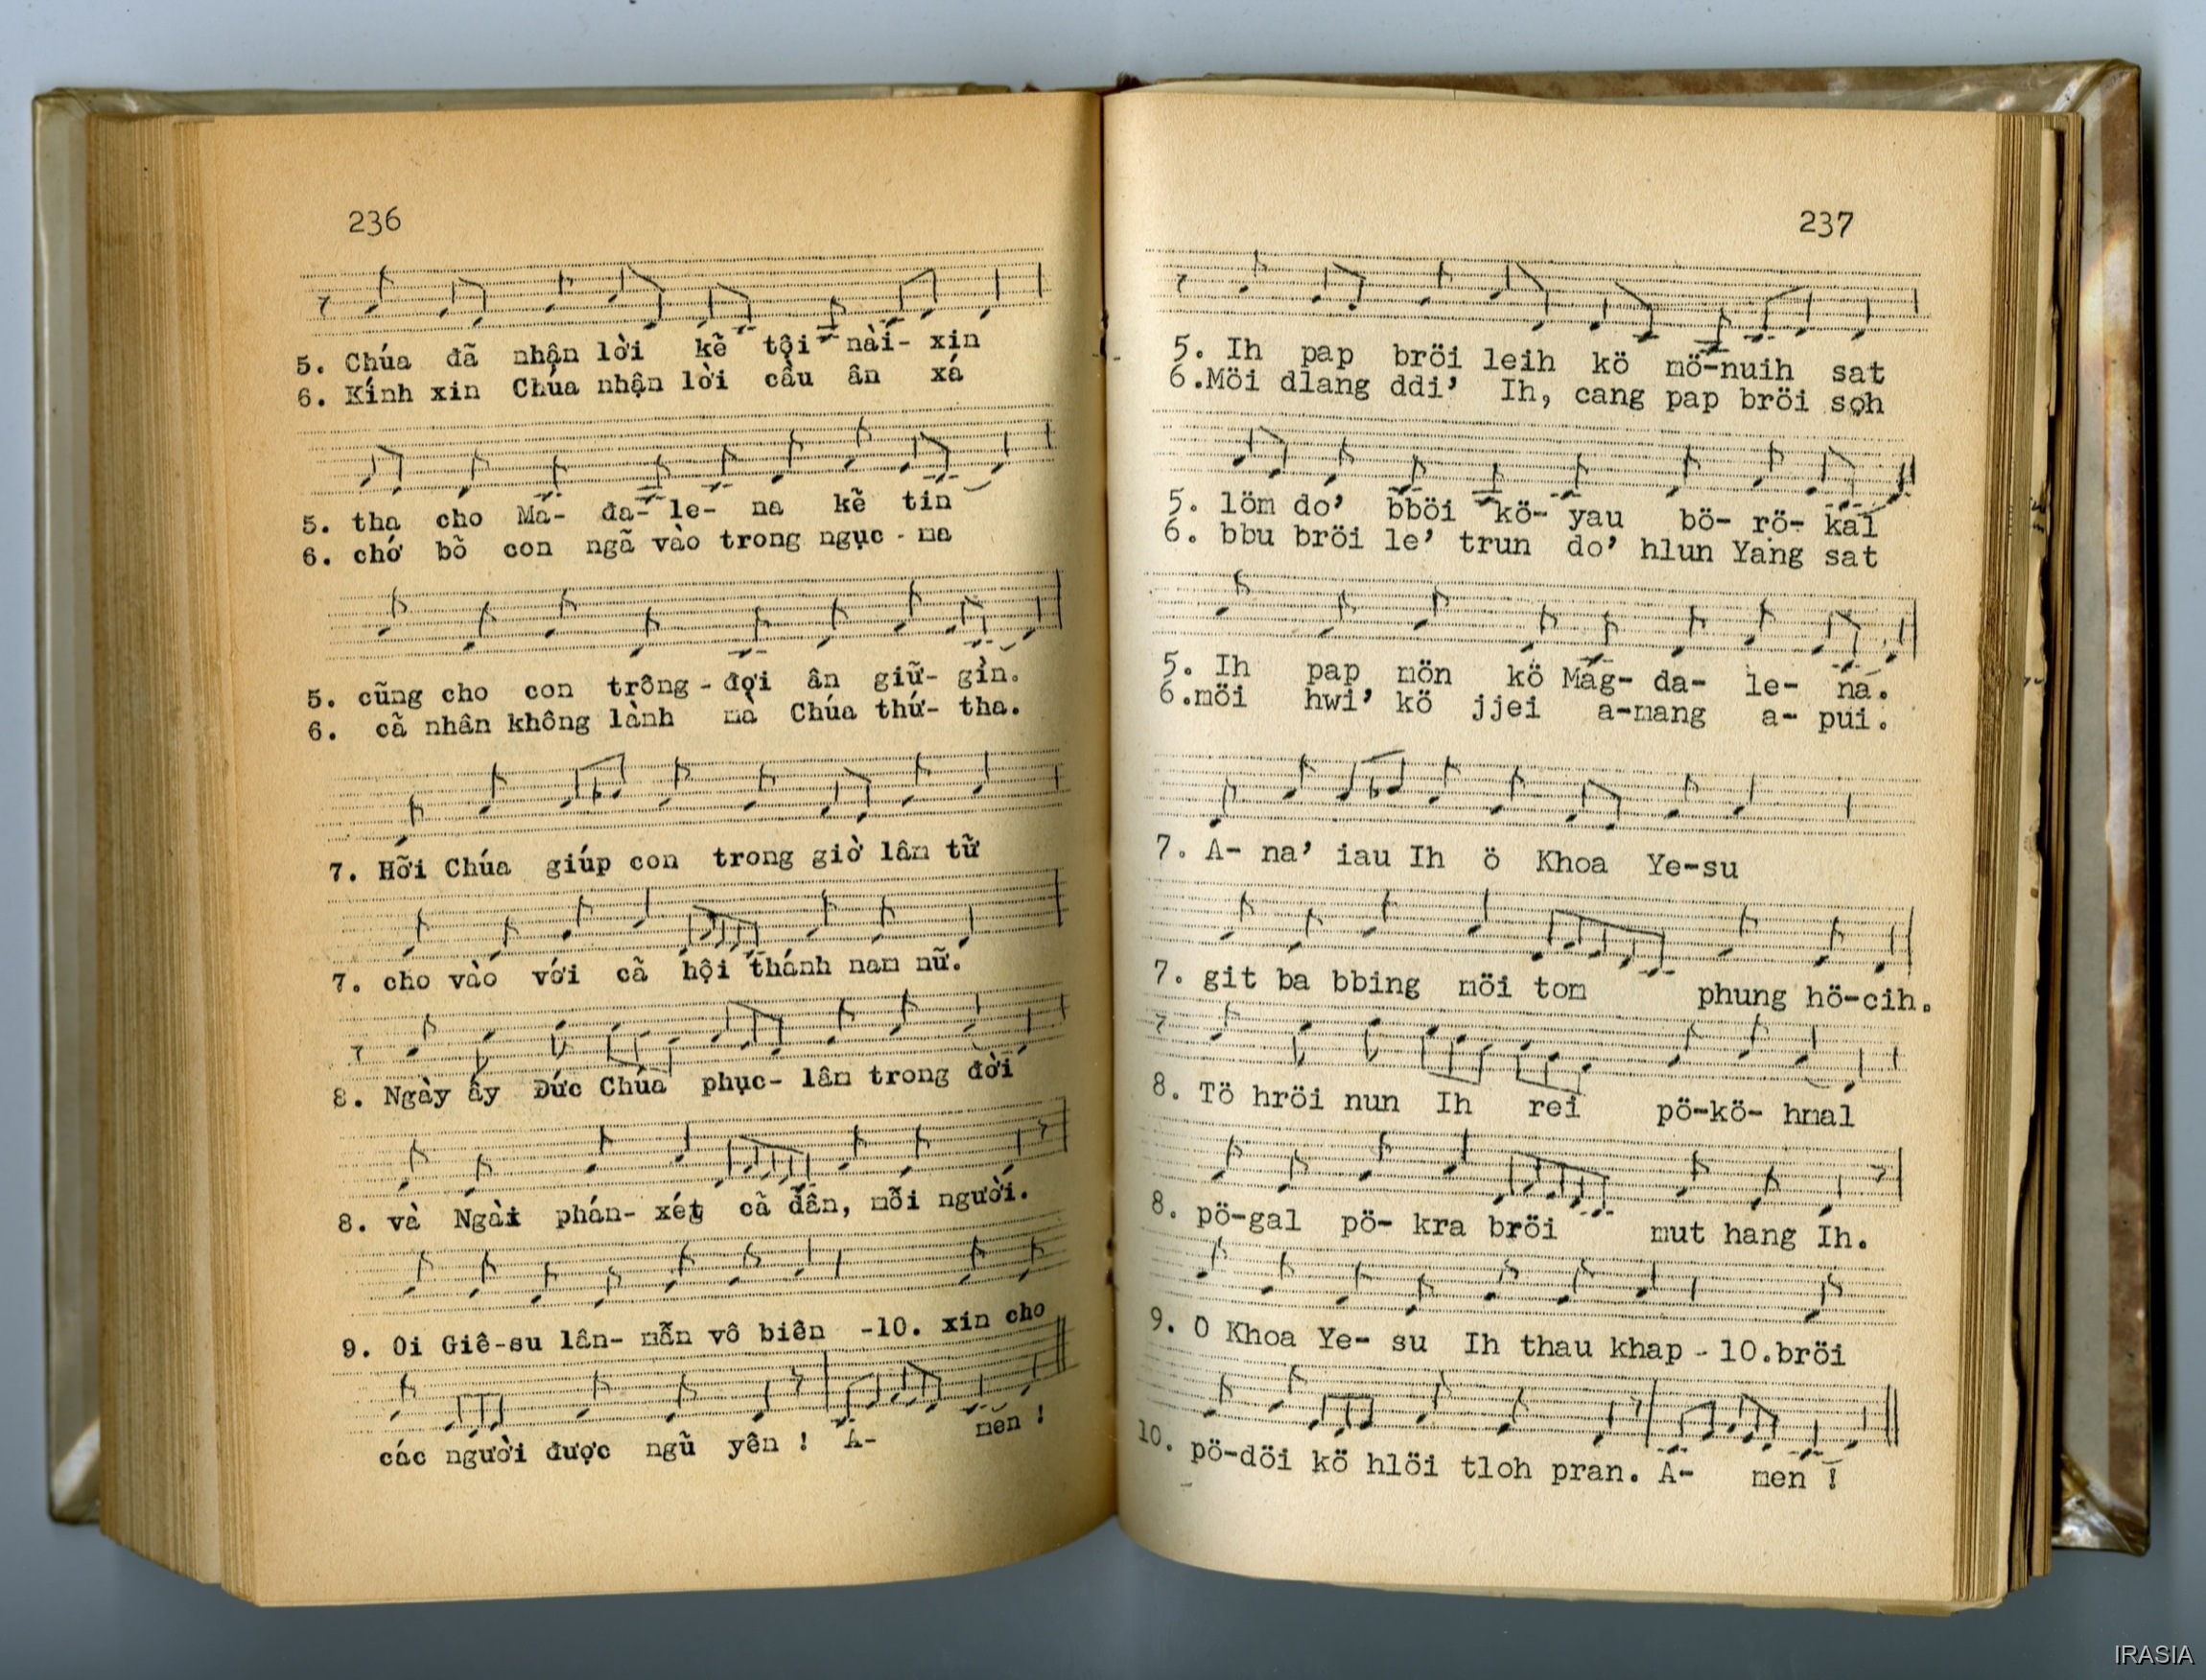 236
5. Chúa đã nhận lời kẽ tội nài- xin
6. Kính xin Chúa nhận lời cầu ân xá
5. tha cho Ma- đa- le- na kẽ tin
6. chớ bõ con ngã vào trong ngục - ma
5. cũng cho con trông - đợi ân giữ- gìn.
6. cã nhân không lành mà Chúa thứ- tha.
7. Hỡi Chúa giúp con trong giờ lâm tữ
7. cho vào với cã hội thánh nam nữ.
8. Ngày ấy Đức Chúa phục- lâm trong đời
8. và Ngài phán- xét cã dân, mỗi người.
9. Oi Giê-su lân- mẫn vô biên -10. xin cho
các người được ngũ yên ! A- men !
237
5. Ih pap bröi leih kö mö-nuih sat
6.Möi dlang ddi’ Ih, cang pap bröi soh
5. löm do’ bböi kö- yau bö- rö- kal
6. bbu bröi le’ trun do’ hlun Yang sat
5. Ih pap mön kö Mag- da- le- na.
6.möi hwi’ kö jjei a-mang a- pui.
7. A- na’ iau Ih ö Khoa Ye-su
7. git ba bbing möi tom phung hö-cih.
8. Tö hröi nun Ih rei pö-kö- hmal
8. pö-gal pö- kra bröi mut hang Ih.
9. O Khoa Ye- su Ih thau khap - 10.bröi
10. pö-döi kö hlöi tloh pran. A- men !
IRASIA